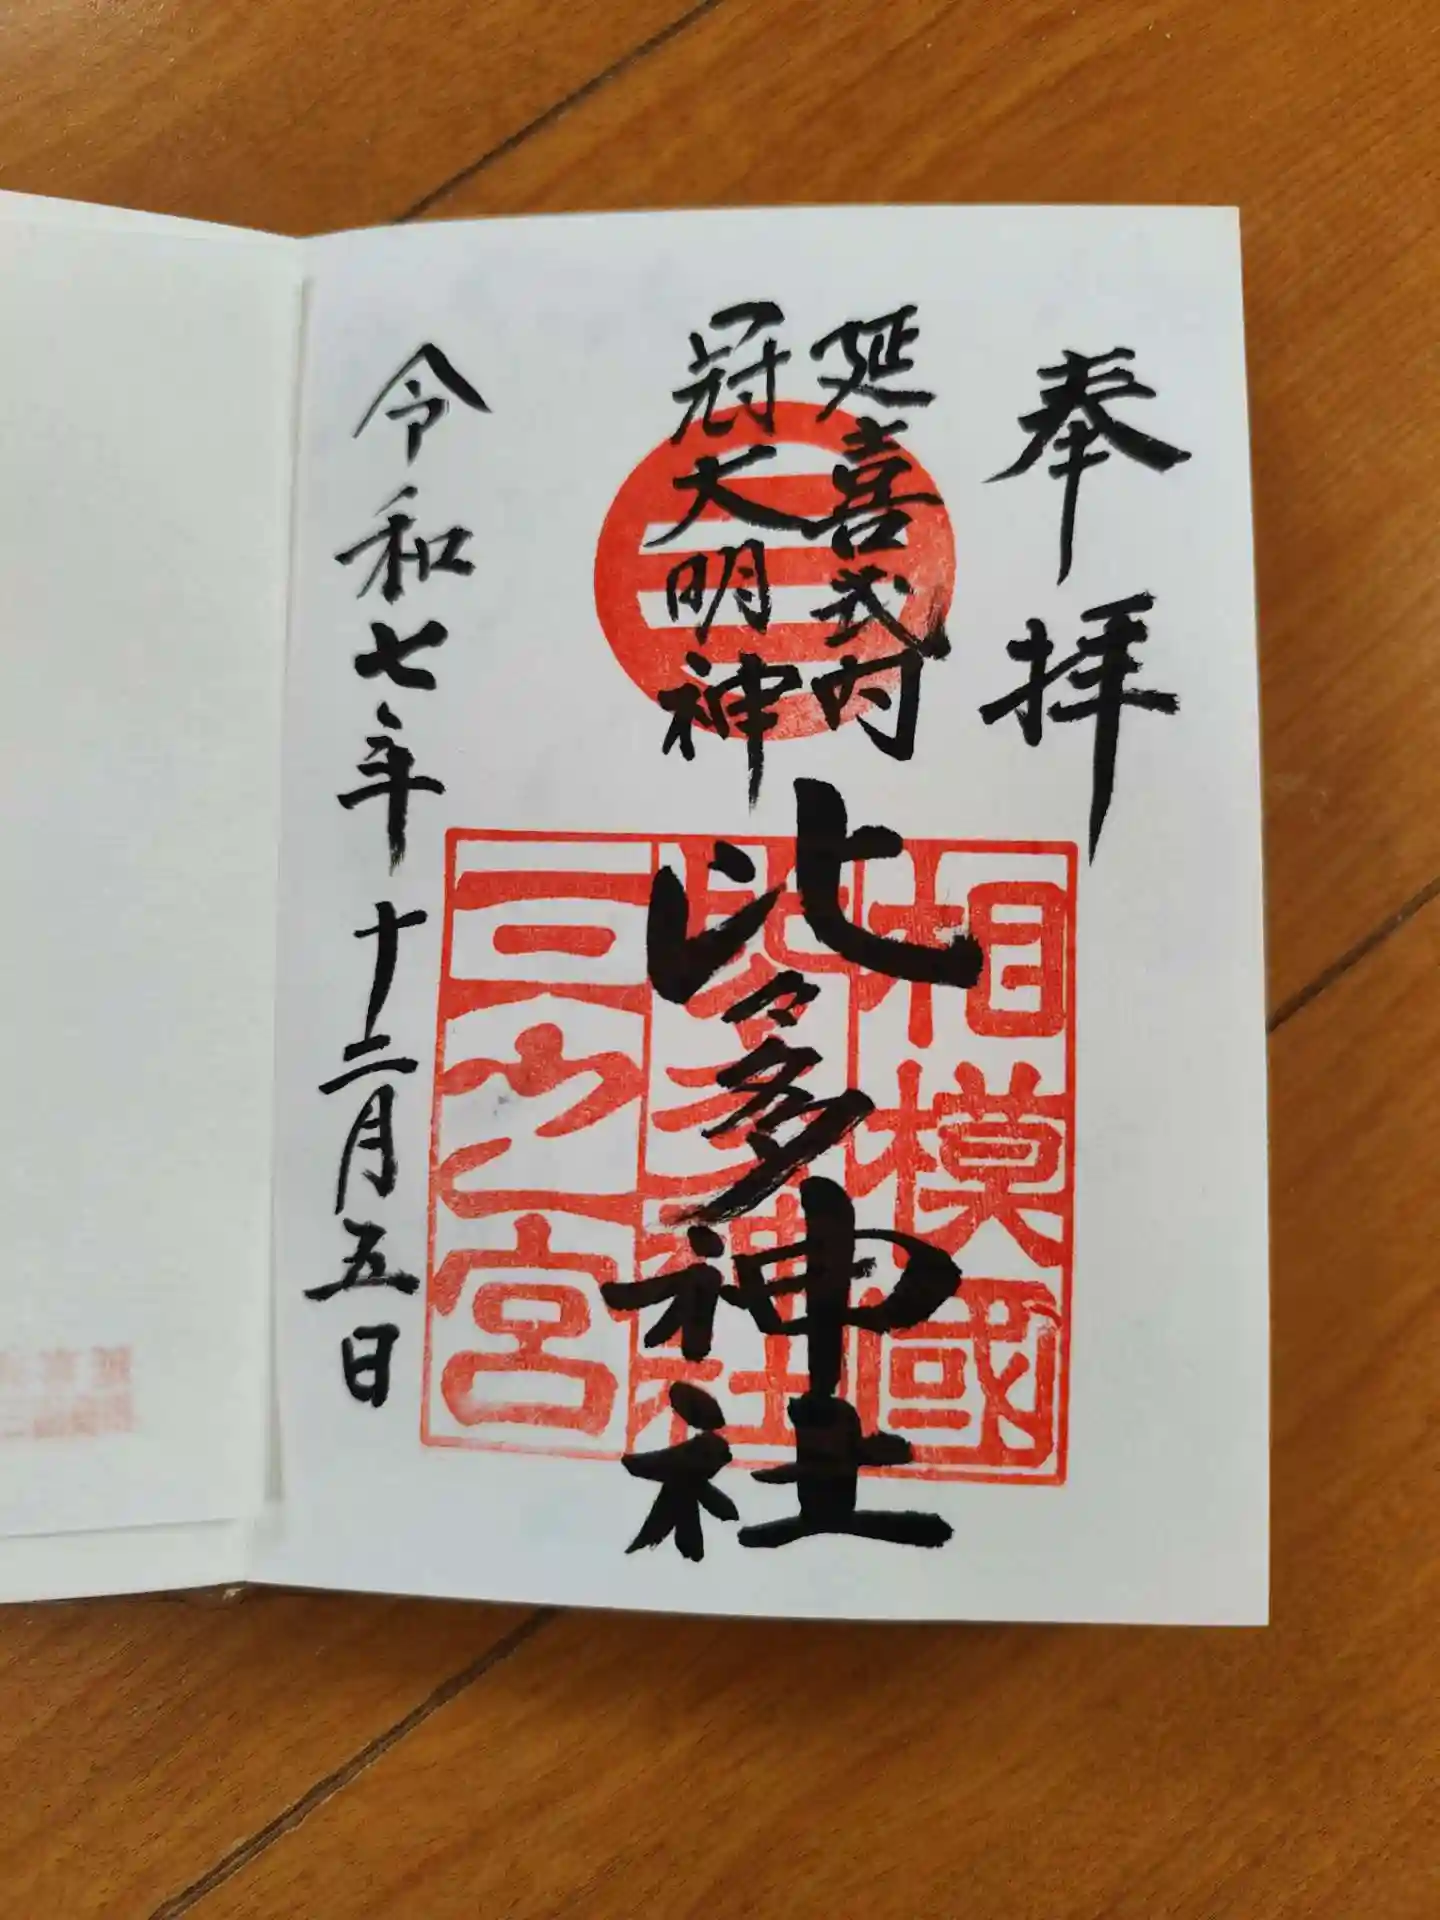 奉拝
延喜式内
冠大明神
比々多神社
相模國
比々多神社
三之宮
令和七年十二月五日